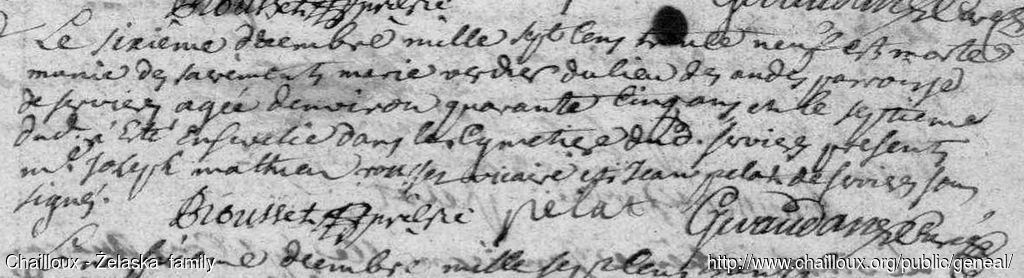 Brousset prêtre Giraudan curé
Le sixième decembre mille sept cens trente neuf est morte
munie des sacrements marie verdier du lieu des andes parroisse
de servieres agée denviron quarante cinq ans et le septieme
dud. a Eté Ensevelie dans le Cymetiere dud. servieres presents
mr. Joseph mathieu vicaire et Jean pelat de servieres sous
signés.
Brousset prêtre pelat Giraudan curé
decembre mille sept cens
Chailloux - Żelaska family http://www.chailloux.org/public/geneal/